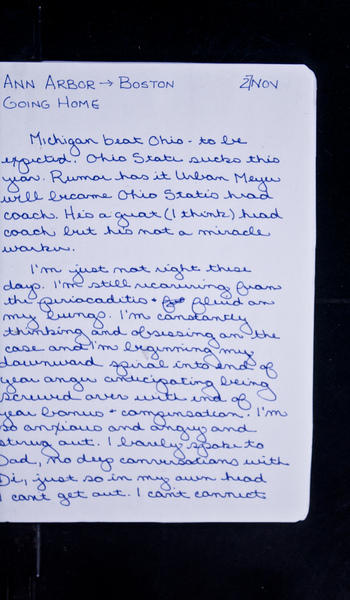 ANN ARBOR → BOSTON 27NOV
GOING HOME
Michigan beat Ohio - to be
expected. Ohio State sucks this
year. Rumor has it Urban Meyer
will became Ohio State's head
coach. He's a great (I think) head
coach but he's not a miracle
worker.
I'm just not right these
days. I'm still recovering from
the pericarditis + fluid on
my lungs. I'm constantly
thinking and obsessing on the
case and I'm beginning my
downward spiral into end of
year anger anticipating being
screwed over with end of
year bonus + compensation. I'm
so anxious and angry and
strung out. I barely spoke to
Dad, no deep conversations with
Di, just so in my own head
I can't get out. I can't connect